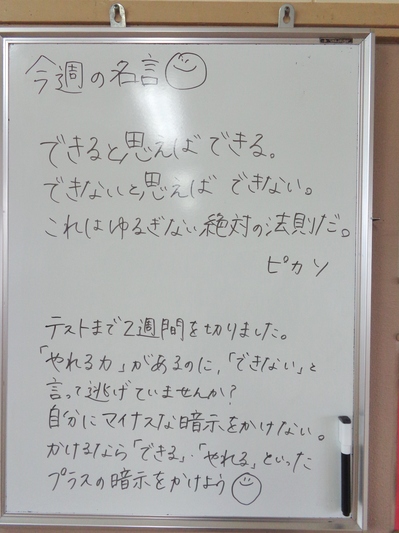 今週の名言
できると思えばできる。
できないと思えばできない。
これはゆるぎない絶対の法則だ。
ピカソ
テストまで2週間を切りました。
「やれる力」があるのに、「できない」と
言って逃げていませんか?
自分にマイナスな暗示をかけない。
かけるなら「できる」・「やれる」といった
プラスの暗示をかけよう